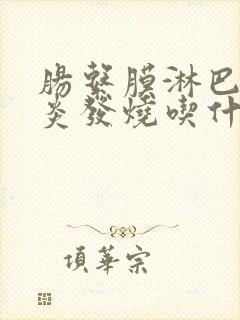 腸繫膜淋巴
炎發燒喫什
項華宗